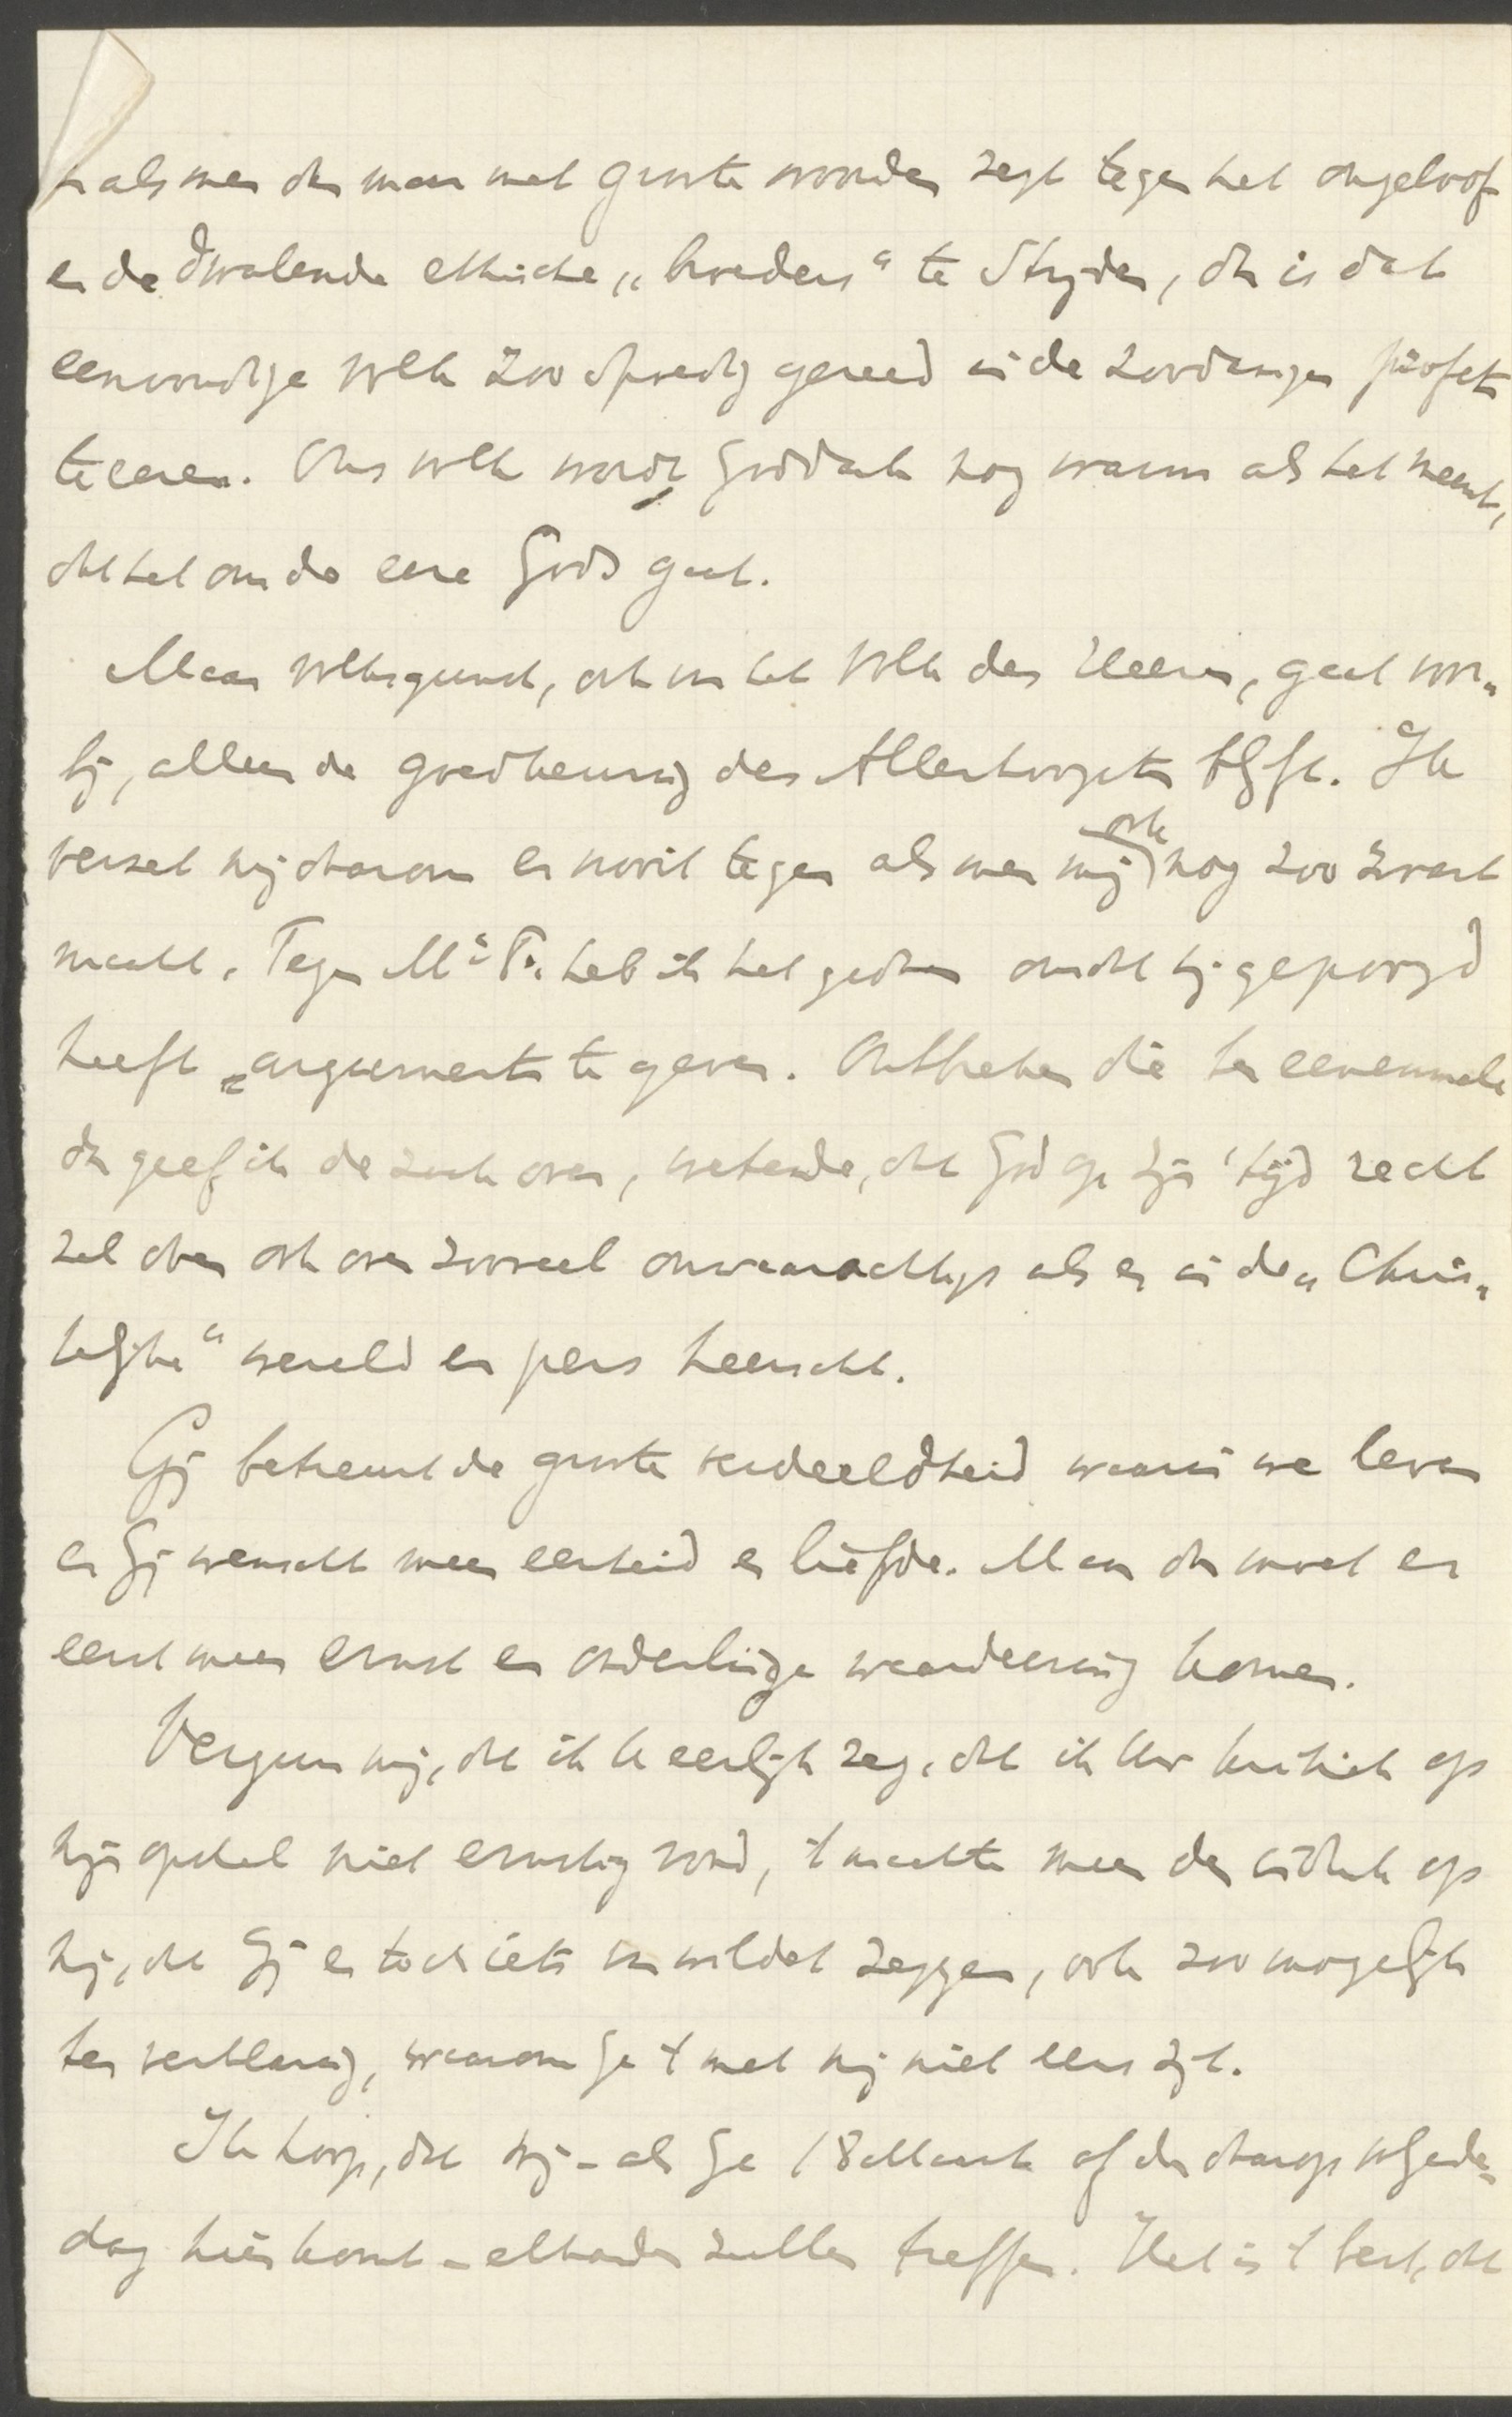 en als men dan maar met groote woorden zegt tegen het ongeloof
en de dwalende ethische „broeders" te strijden, dan is dat
eenvoudige volk zoo spoedig gereed in de zoodanigen profeten
te eeren. Ons volk wordt Goddank nog warm als het meent,
dat het om de eere Gods gaat.
Maar volksgunst, ook van het volk des Heeren, gaat voor-
bij, alleen de goedkeuring des Allerhoogsten blijft. Ik
verzet mij daarom er nooit tegen als men mij ook nog zoo zwart
maakt. Tegen Mr T. heb ik het gedaan omdat hij gepoogd
heeft argumenten te geven. Ontbreken die ten eenenmale
dan geef ik de zaak over, wetende, dat God op Zijn tijd recht
zal doen ook over zooveel onwaarachtigs als er in de „Chris-
telijke" wereld en pers heerscht.
Gij betreurt de groote verdeeldheid waarin we leven
en Gij wenscht meer eenheid en liefde. Maar dan moet er
eerst meer ernst en onderlinge waardeering komen.
Vergun mij, dat ik U eerlijk zeg, dat ik Uw kritiek op
mijn opstel niet ernstig vond, 't maakte meer den indruk op
mij, dat Gij er toch iets van wildet zeggen, ook zoo mogelijk
ter verklaring, waarom Ge 't met mij niet eens zijt.
Ik hoop, dat wij – als Ge 18 Maart of den daarop volgenden
dag hier komt – elkander zullen treffen. Het is 't best, dat